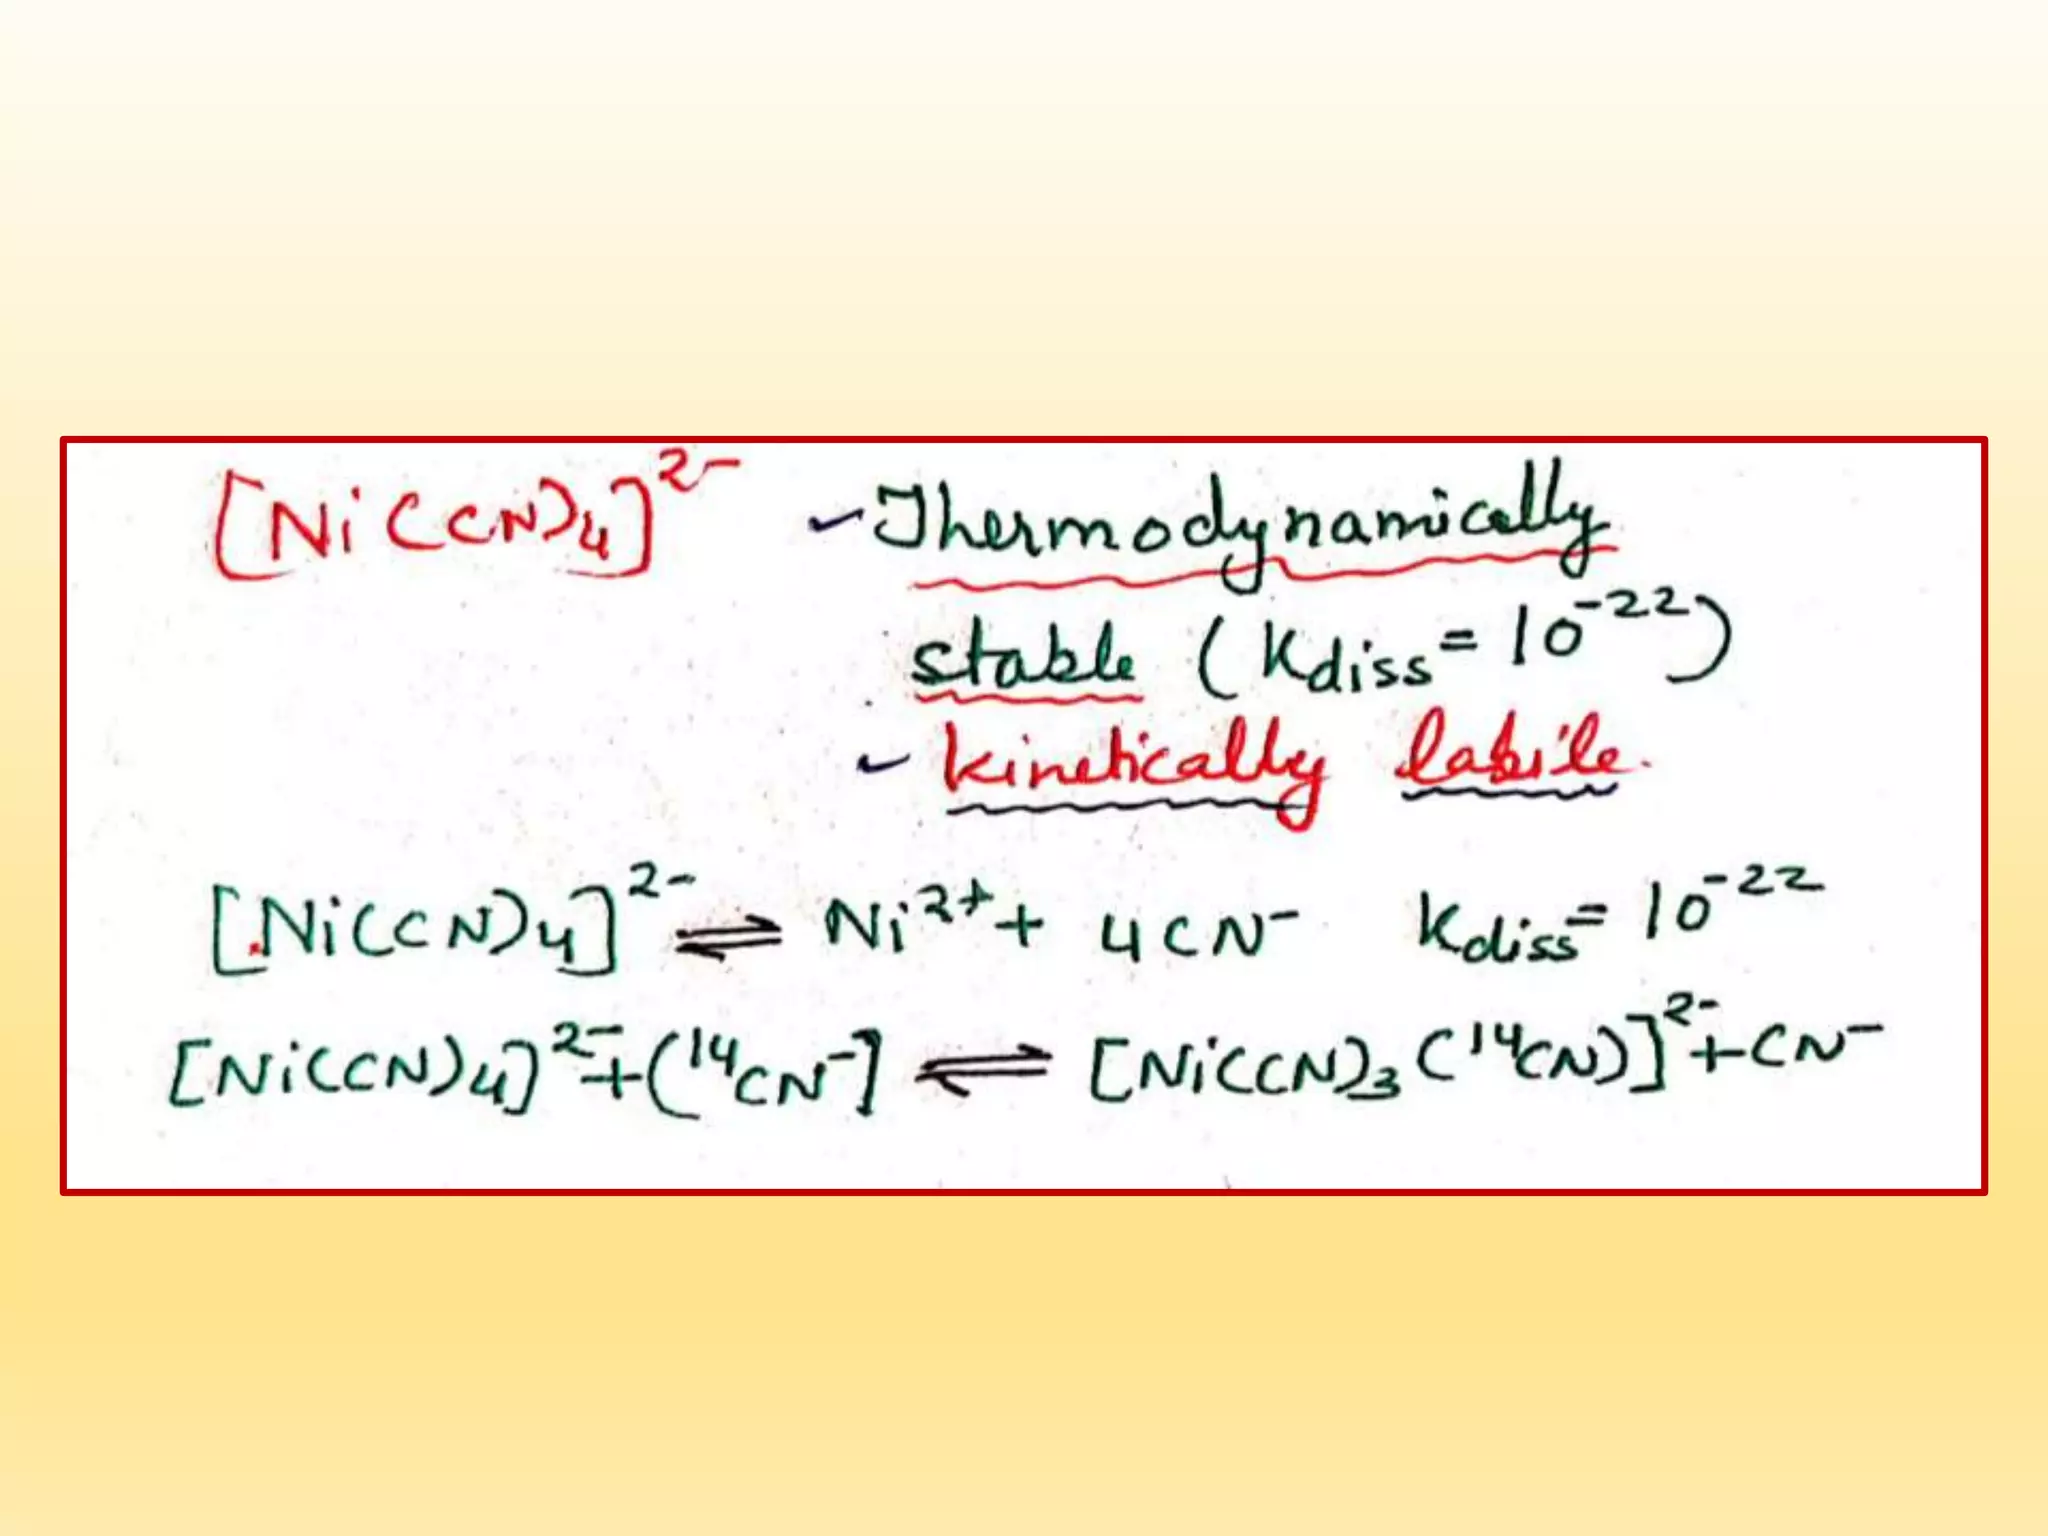 [Ni(CN)4]²⁻ ✓Thermodynamically
stable (Kdiss = 10⁻²²)
✓ kinetically labile.
[Ni(CN)4]²⁻ ⇌ Ni²⁺ + 4CN⁻ Kdiss = 10⁻²²
[Ni(CN)4]²⁻ + (¹⁴CN⁻] ⇌ [Ni(CN)3(¹⁴CN)]²⁻ + CN⁻